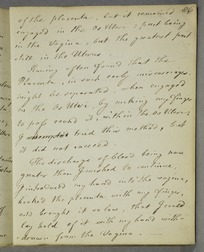 of the placenta, but it remained
engaged in the Os Uteri, a part being
in the Vagina, but the greatest part
still in the Uterus.
Having often found that the
Placenta, in such early miscarriages
might be separated, when engaged
in the Os Uteri, by making my finger
to pass round it, within the os Uteri,
I tried this method; but
it did not succeed.
The discharge of blood being now
greater than I wished to continue,
I introduced my hand into the vagina,
hooked the placenta with my finger,
and brought it so low, that I could
lay hold of it with my hand with-
drawn from the Vagina.